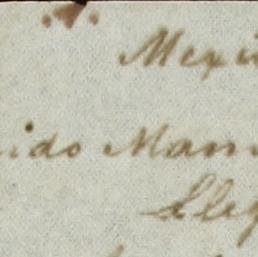 Mexi
ido Man
Lleg